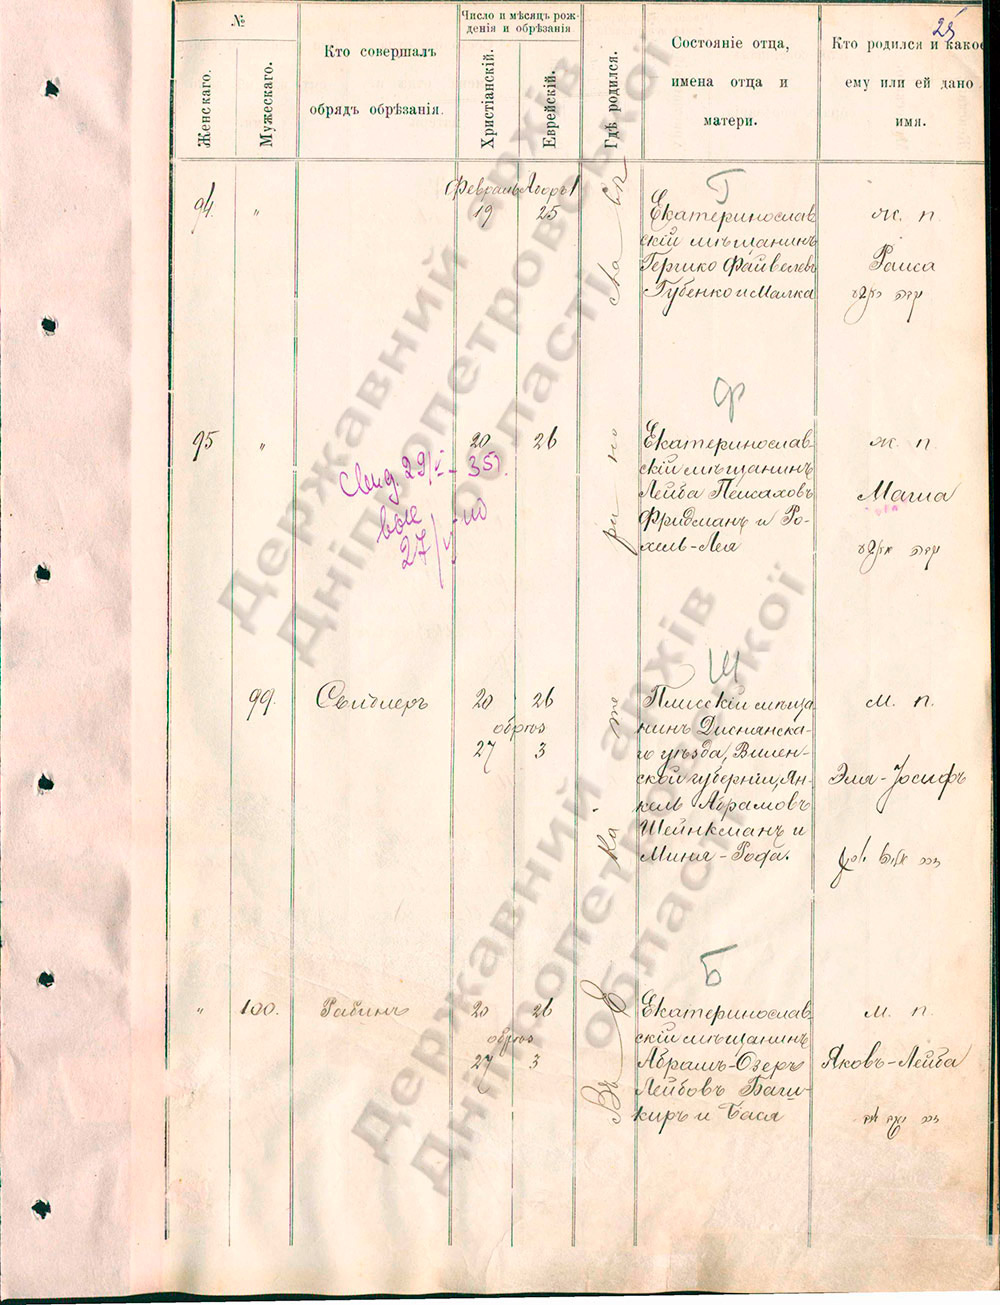 25
№
Женскаго.
Мужескаго.
Кто совершалъ
обрядъ обрѣзанія.
Число и мѣсяцъ рож-
денія и обрѣзанія
Христіанскій.
Еврейскій.
Гдѣ родился.
Состояніе отца,
имена отца и
матери.
Кто родился и какое
ему или ей дано
имя.
Въ Екатеринославѣ
94. "
Февраль
19 25
Г
Екатеринослав
скій мѣщанинъ
Гершко Файвелевъ
Губенко и Малка
ж. п.
Раиса
95 "
20 26
Свид. 29/V - 35
27/V
Ф
Екатеринослав-
скій мѣщанинъ
Лейба Пейсаховъ
Фридманъ и Ро-
хель-Лея
ж. п.
Маша
99.
20 26
обрѣз
27 3
Ш
Плисскій мѣща
нинъ Диснянска-
го уѣзда, Вилен-
ской губерніи, Ян-
кель Абрамовъ
Шейнкманъ и
Миня-Рода.
м. п.
Эля-Іосифъ
" 100.
Рабинъ
20 26
обрѣз
27 3
Б
Екатеринослав
скій мѣщанинъ
Абрамъ-Озеръ
Лейбовъ Баш-
киръ и Бася
м. п.
Яковъ-Лейба
Державний архів
Дніпропетровської
області
Державний архів
Дніпропетровської
області